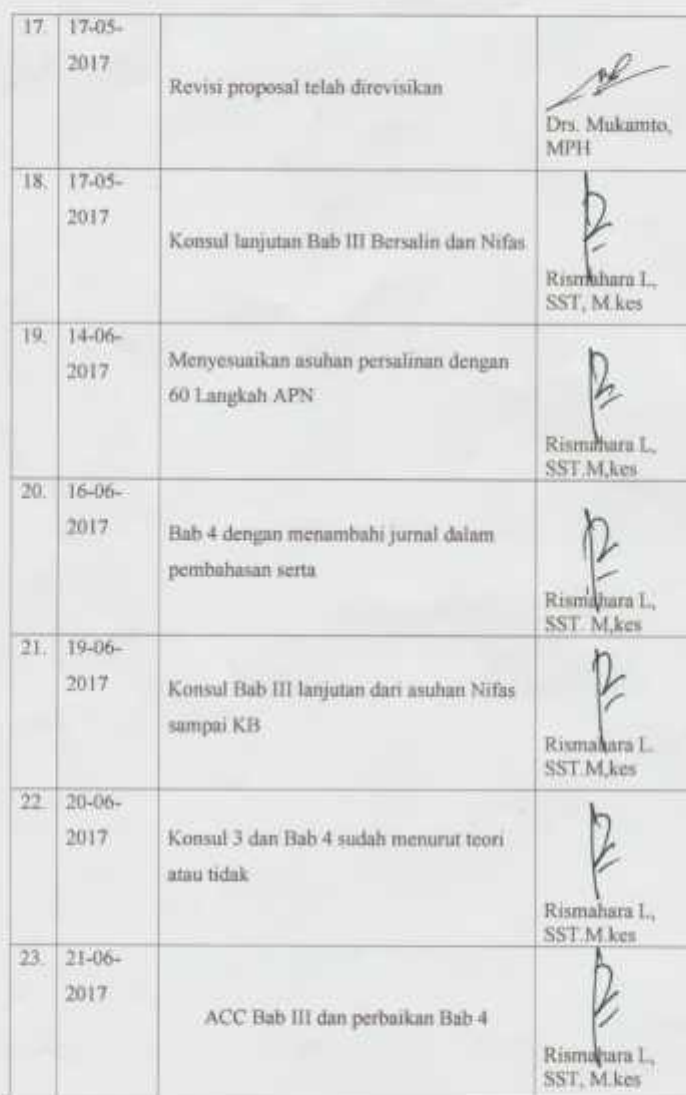 17. 17-05-
2017
Revisi proposal telah direvisikan
Drs. Mukamto,
MPH
18. 17-05-
2017
Konsul lanjutan Bab III Bersalin dan Nifas
Rismahara L,
SST, M.kes
19. 14-06-
2017
Menyesuaikan asuhan persalinan dengan
60 Langkah APN
Rismahara L,
SST.M,kes
20. 16-06-
2017
Bab 4 dengan menambahi jurnal dalam
pembahasan serta
Rismahara L,
SST. M,kes
21. 19-06-
2017
Konsul Bab III lanjutan dari asuhan Nifas
sampai KB
Rismahara L.
SST.M,kes
22. 20-06-
2017
Konsul 3 dan Bab 4 sudah menurut teori
atau tidak
Rismahara L,
SST.M.kes
23. 21-06-
2017
ACC Bab III dan perbaikan Bab 4
Rismahara L,
SST, M.kes